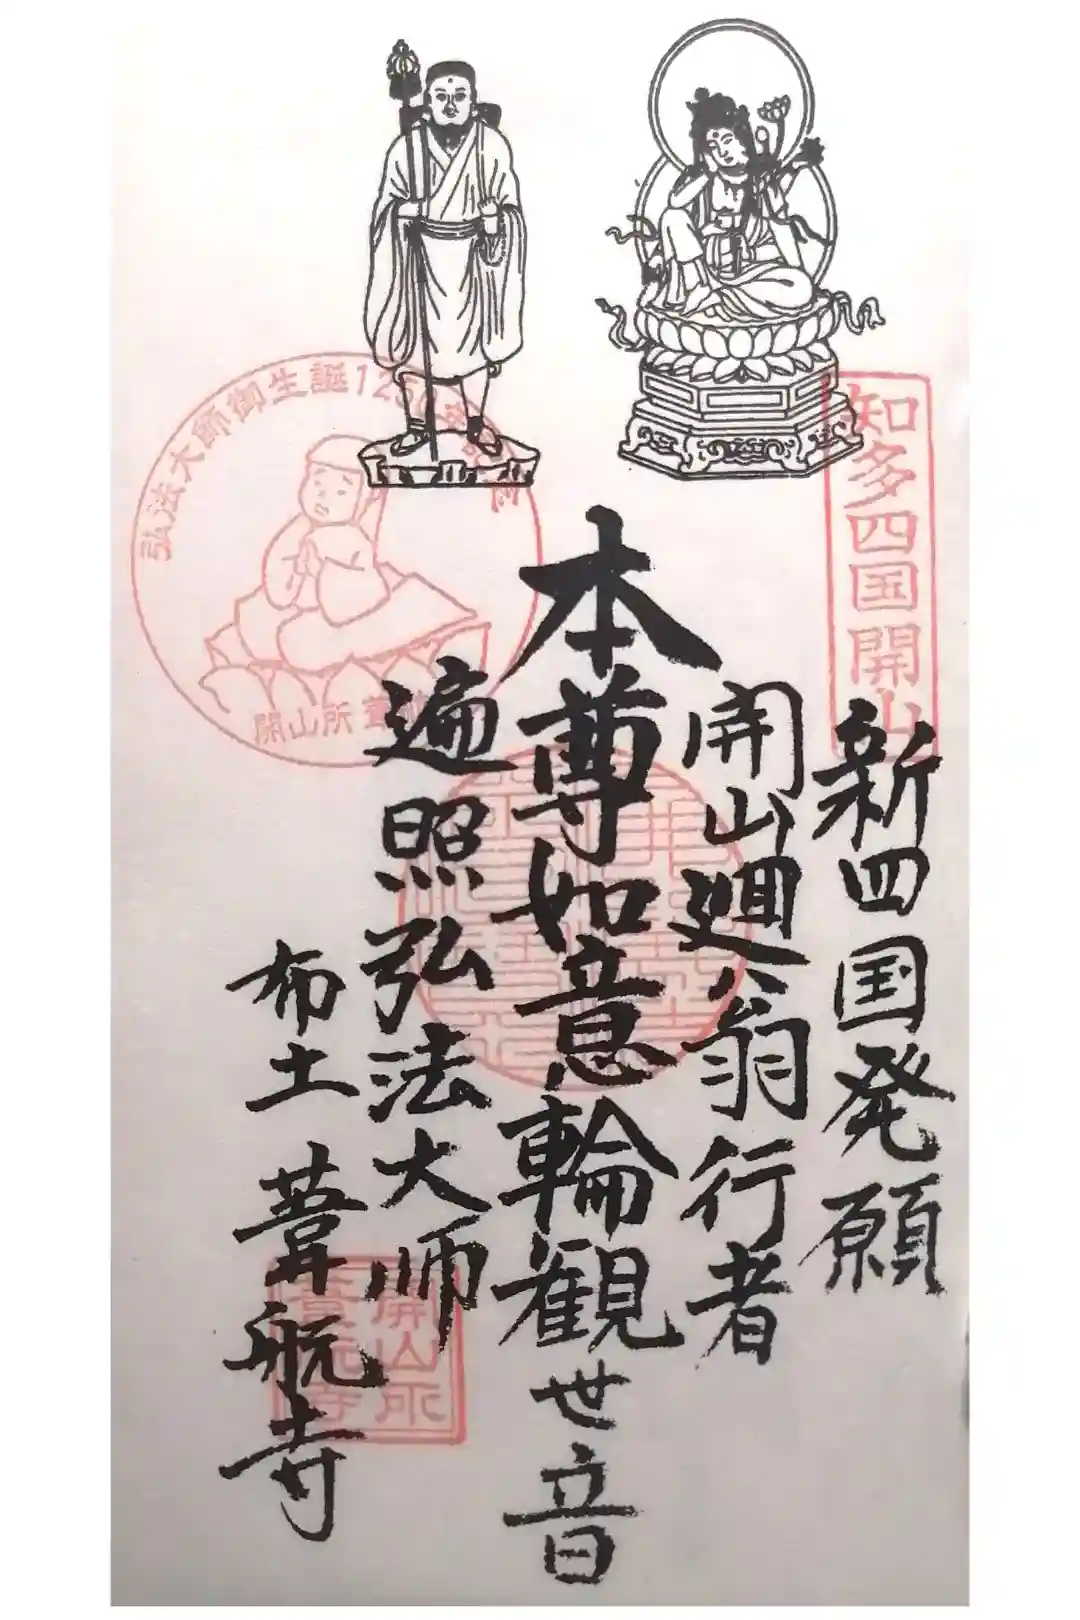 知多四国開山
新四国発願
開山廻翁行者
本尊如意輪観世音
遍照弘法大师
布土 葦航寺
弘法大師御生誕125
開山所 葦
開山所
葦航寺